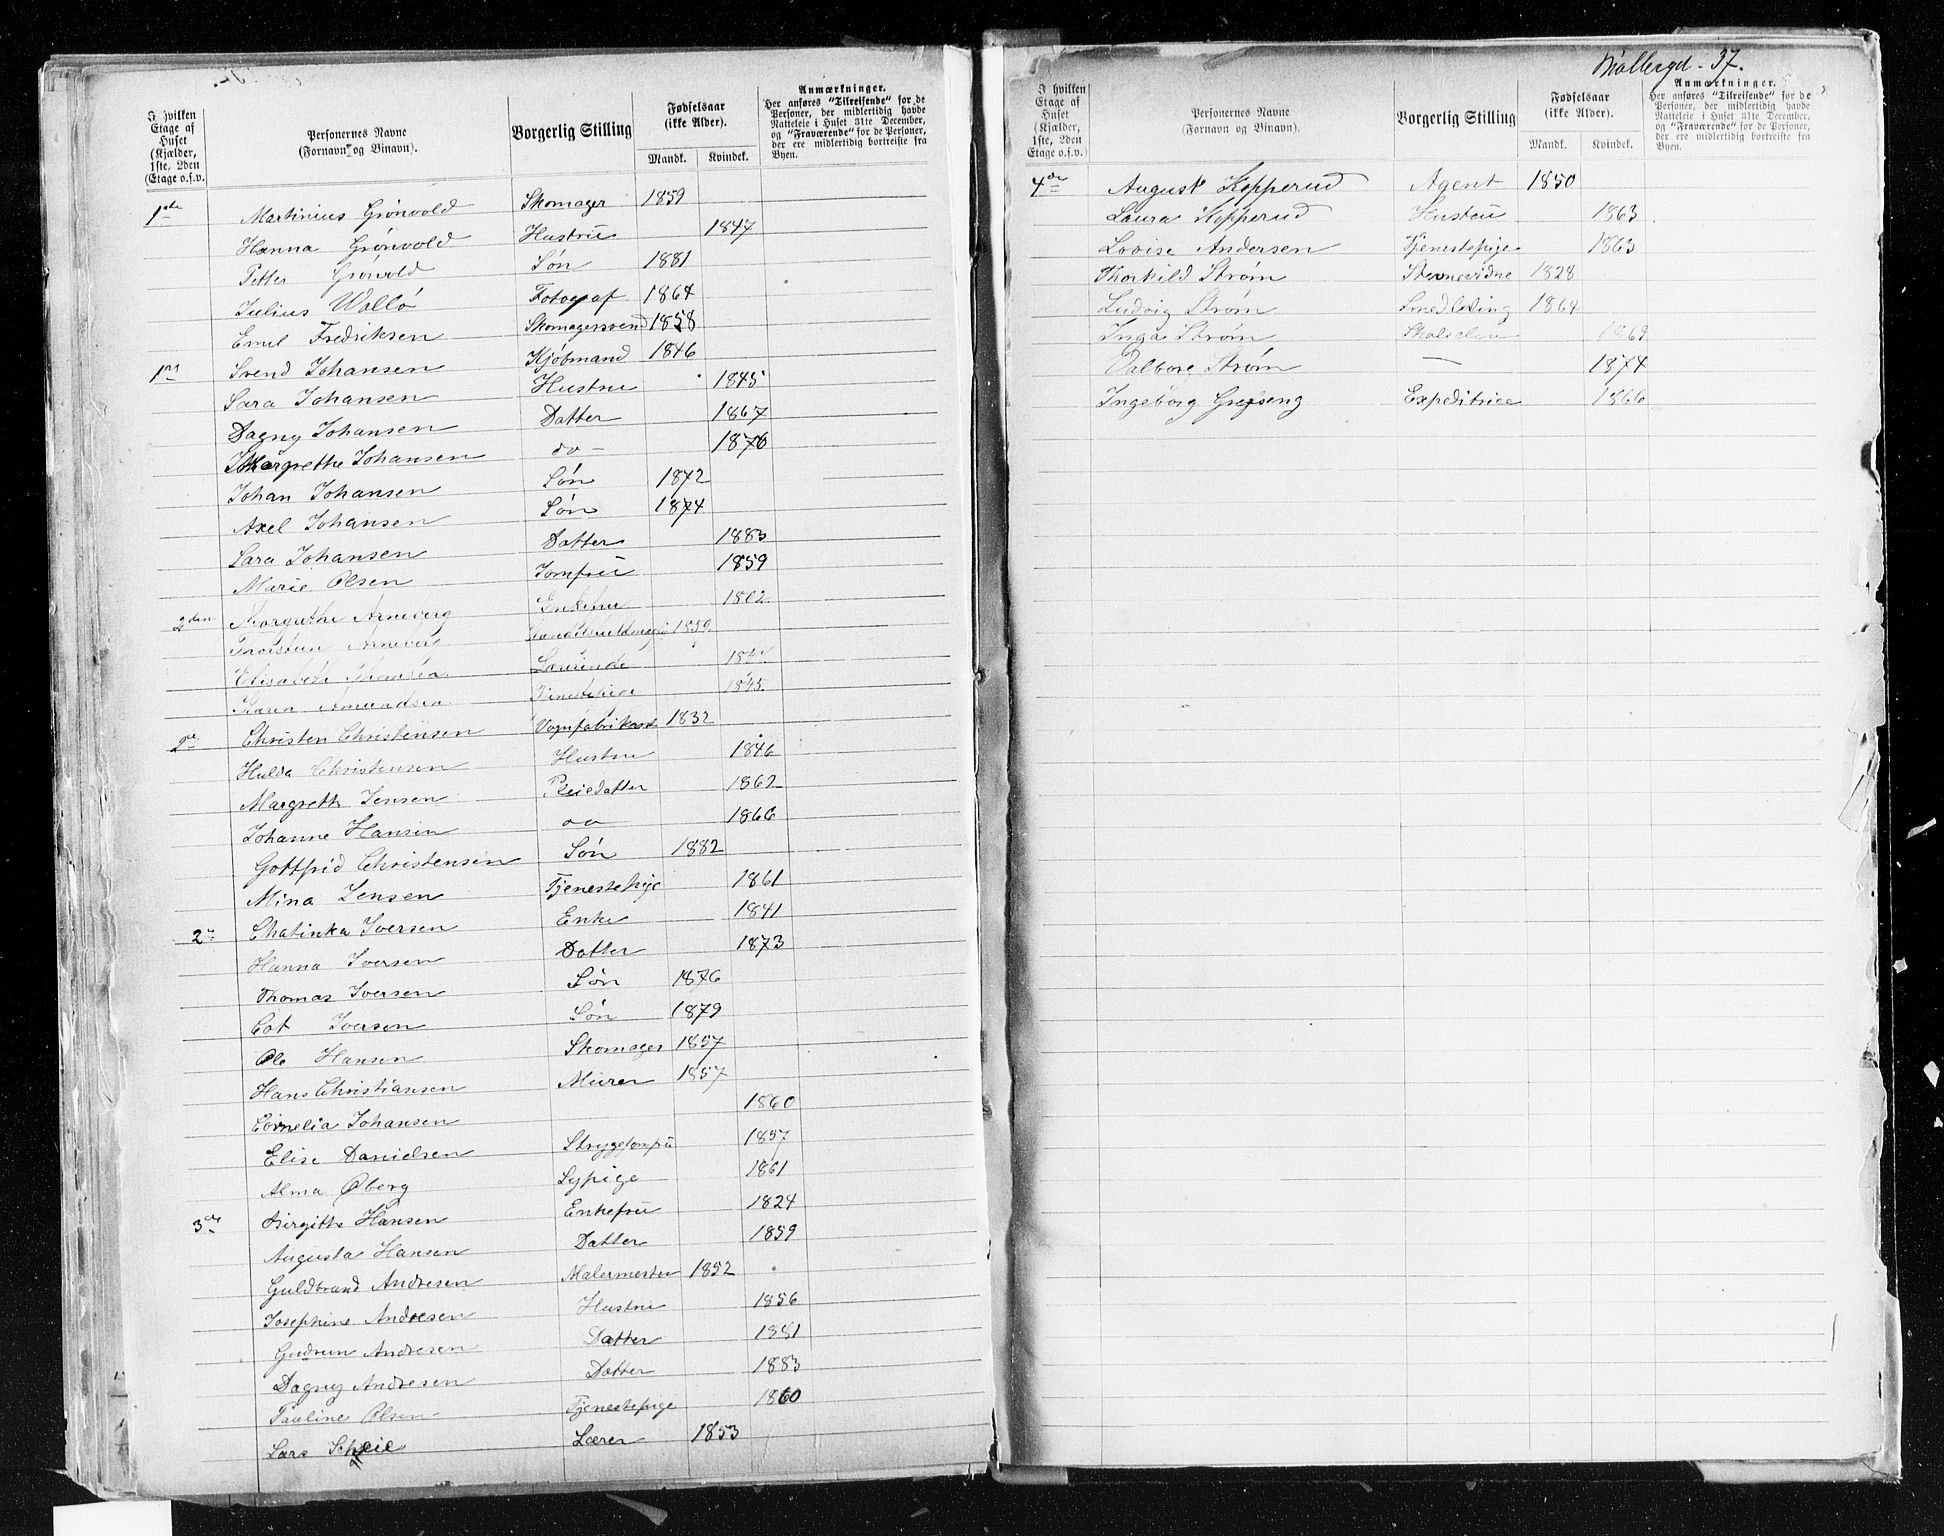 I hvilken Etage af Huset (Kjælder, 1ste, 2den Etage o.s.v.
Personernes Navne (Fornavn og Binavn).
Borgerlig Stilling
Fødselsaar (ikke Alder).
Mandk. Kvindek.
Anmærkninger.
Her anføres "Tilreisende" for de Personer, der midlertidig havde Natteleie i Huset 31te December, og "Fraværende" for de Personer, der ere midlertidig bortreiste fra Byen.
1ste Martinius Grönvold Skomager 1859
Hanna Grönvold Hustru 1847
Petter Grönvold Søn 1881
Julius Wollö Fotograf 1864
Emil Fredriksen Skomagersvend 1858
1ste Svend Johansen Kjøbmand 1846
Sara Johansen Hustru 1845
Dagny Johansen Datter 1867
Margrethe Johansen do - 1870
Johan Johansen Søn 1872
Axel Johansen Søn 1874
Sara Johansen Datter 1883
Marie Olsen Jomfru 1859
2den Margrethe Arneberg Enkefru 1802
Arneberg 1850
Elisabeth Lærerinde
Karen Amundsen Tjenestepige 1845
Christen Christensen Vognfabrikant 1832
Hulda Christensen Hustru 1846
Margrethe Jensen Pleiedatter 1862
Johanne Hansen do 1866
Gottfrid Christensen Søn 1882
Mina Jensen Tjenestepige 1861
2 Chatinka Iversen Enke 1841
Hanna Iversen Datter 1873
Thomas Iversen Søn 1876
Iversen Søn 1879
Ole Hansen Skomager 1857
Hans Christiansen Murer 1857
Cornelia Johansen 1860
Elise Danielsen Strygejomfru 1857
Alma Øberg Sypige 1861
3de Birgithe Hansen Enkefru 1824
Augusta Hansen Datter 1859
Guldbrand Andresen Malermester 1852
Josephine Andresen Hustru 1856
Gudrun Andresen Datter 1881
Dagny Andresen Datter 1883
Pauline Olsen Tjenestepige 1860
Lars Scheie Lærer 1853
Møllergd. 37.
I hvilken Etage af Huset (Kjælder, 1ste, 2den Etage o.s.v.
Personernes Navne (Fornavn og Binavn).
Borgerlig Stilling
Fødselsaar (ikke Alder).
Mandk. Kvindek.
Anmærkninger.
Her anføres "Tilreisende" for de Personer, der midlertidig havde Natteleie i Huset 31te December, og "Fraværende" for de Personer, der ere midlertidig bortreiste fra Byen.
4de August Kopperud Agent 1850
Laura Kopperud Hustru 1863
Lovise Andersen Tjenestepige 1863
Thorkild Strøm Stevnevidne 1828
Ludvig Strøm Smedlærling 1864
Inga Strøm Skoleelev 1869
Valborg Strøm — 1874
Ingeborg Grefseng Expeditrice 1866